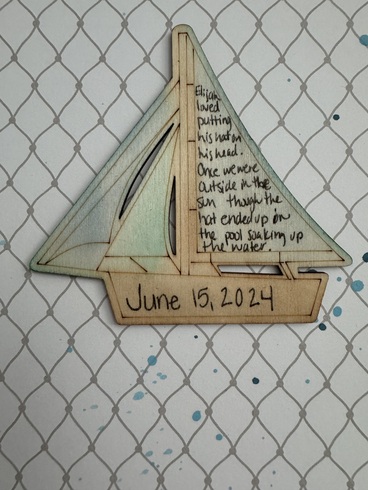 Elijah
loved
putting
his hat on
his head.
Once we were
outside in the
sun though the
hat ended up in
the pool soaking up
the water.
June 15, 2024